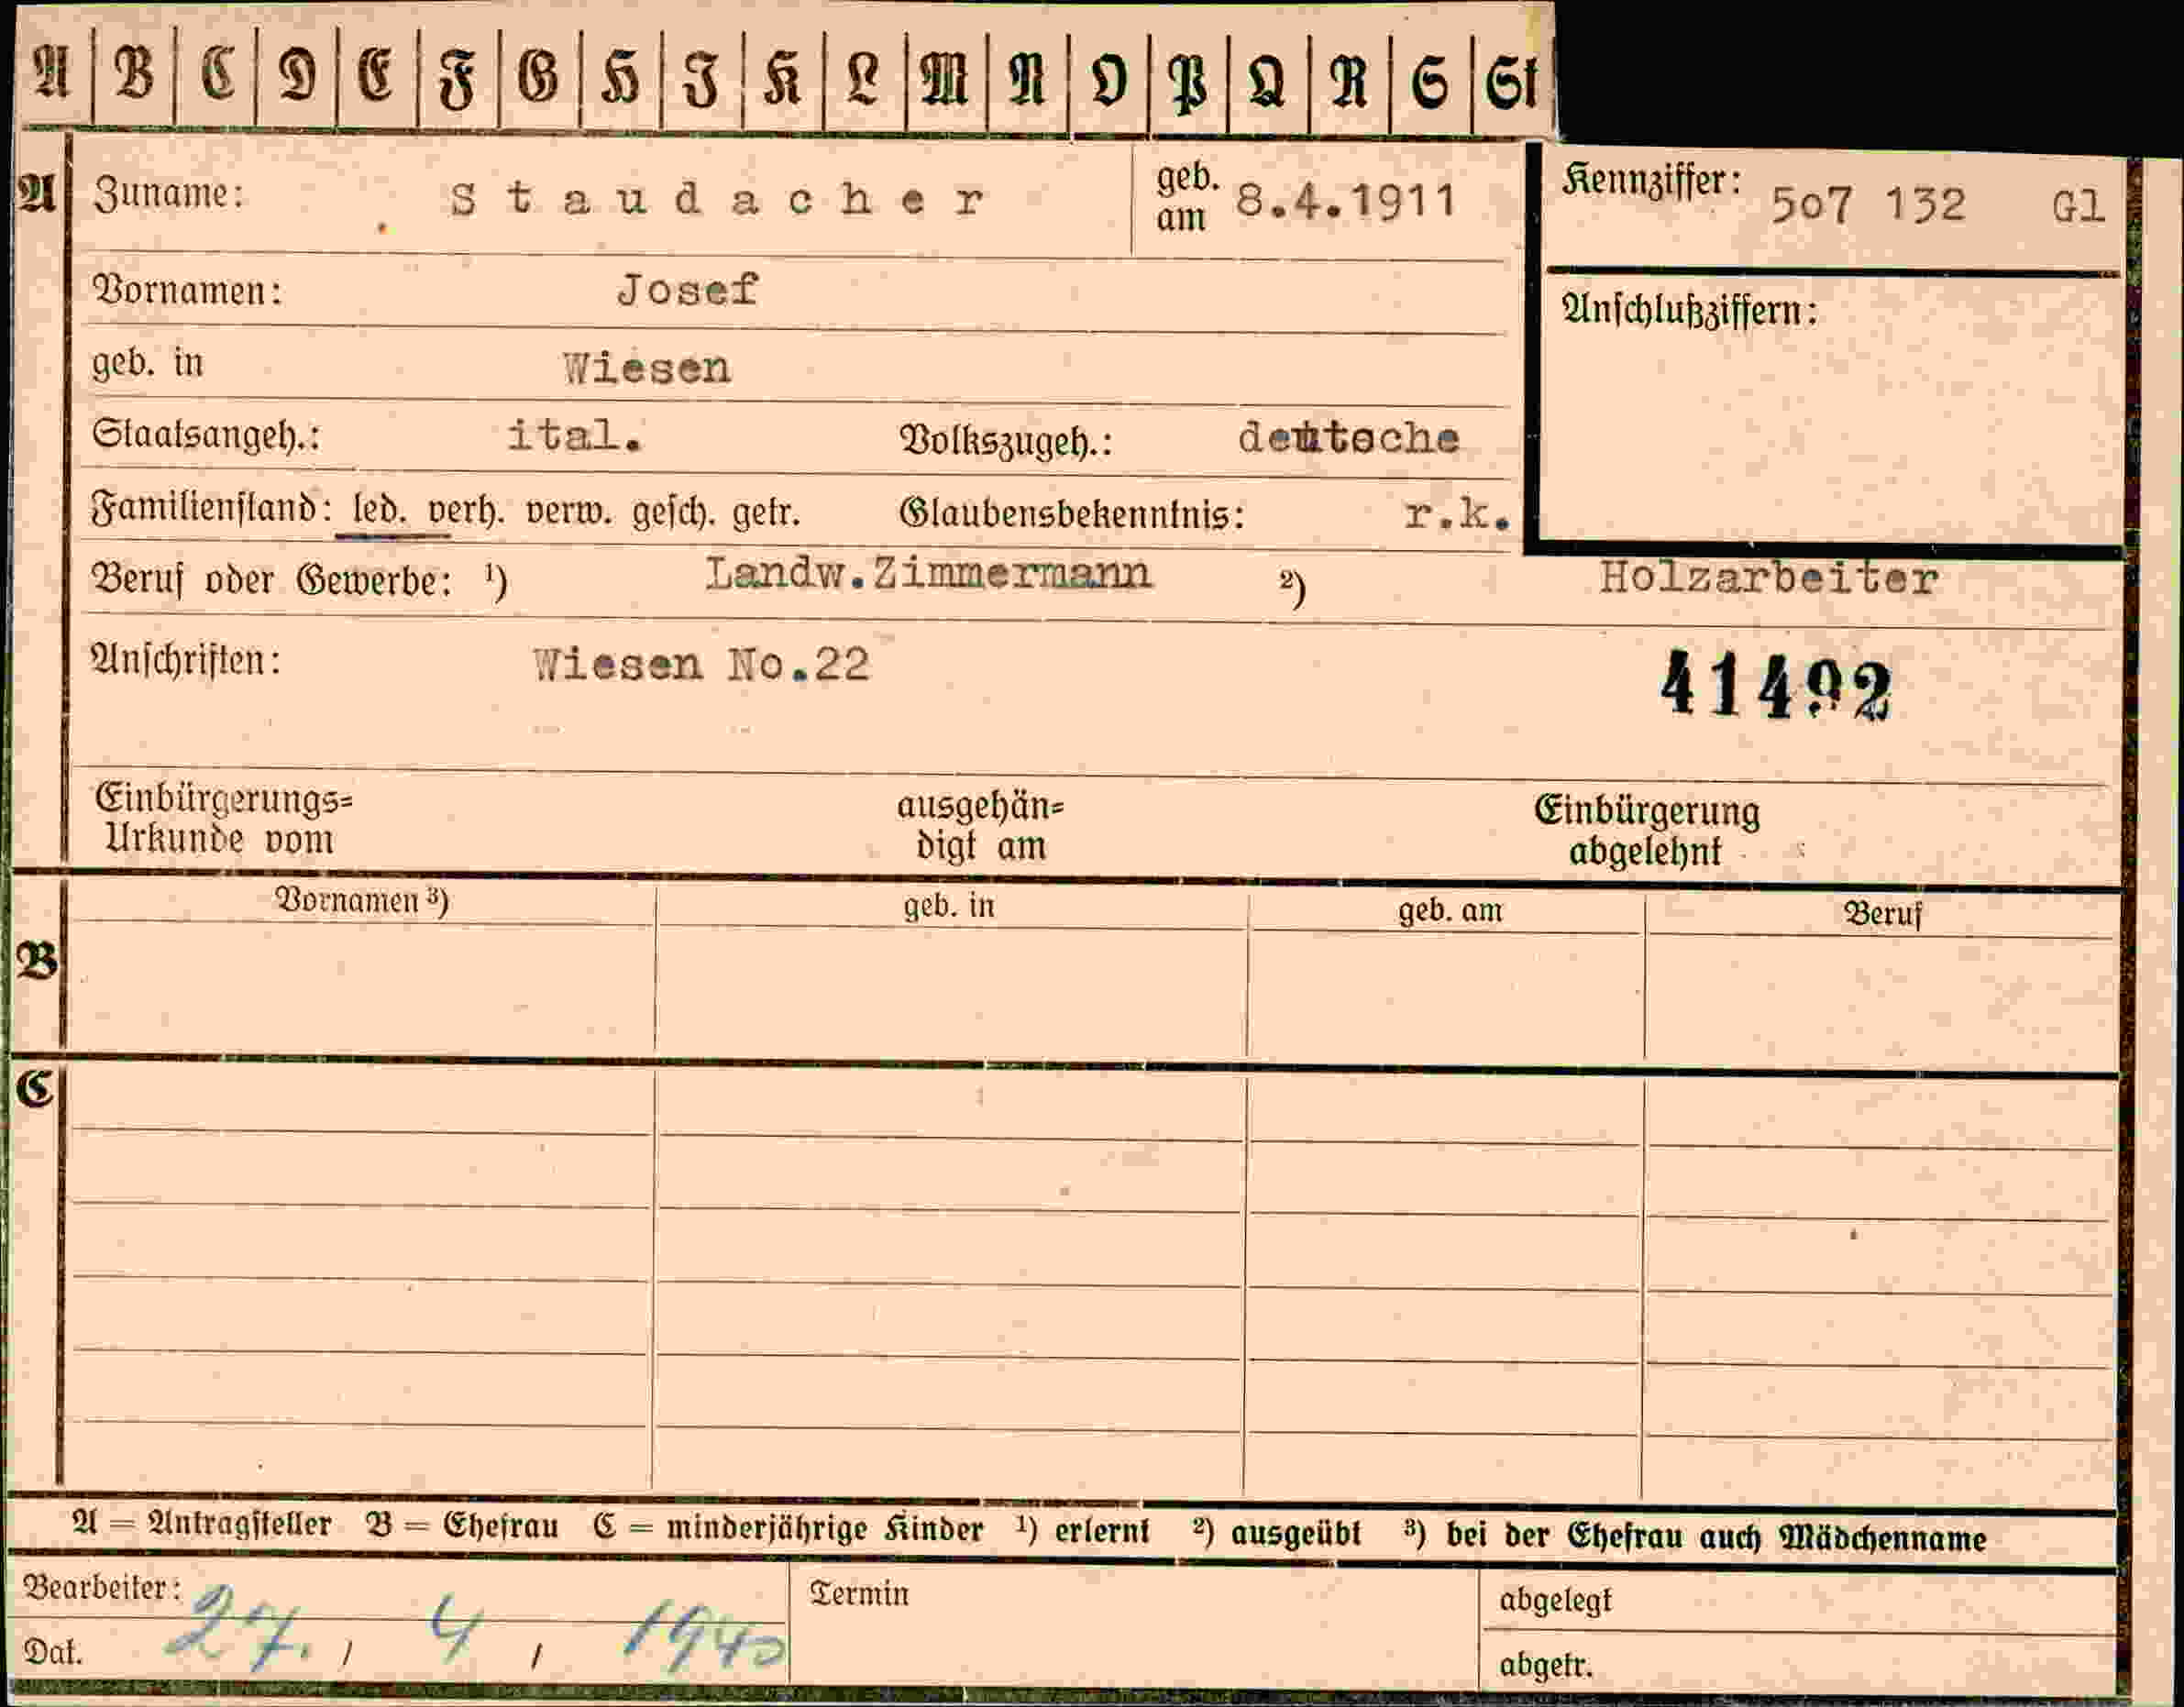 A B C D E F G H I K L M N O P Q R S St
A Zuname: Staudacher geb. am 8.4.1911 Kennziffer: 507 132 Gl
Vornamen: Josef Anschlußziffern:
geb. in Wiesen
Staatsangeh.: ital. Volkszugeh.: deutsche
Familienstand: led. verh. verw. gesch. getr. Glaubensbekenntnis: r.k.
Beruf oder Gewerbe: 1) Landw.Zimmermann 2) Holzarbeiter
Anschriften: Wiesen No.22 41492
Einbürgerungs= ausgehän= Einbürgerung
Urkunde vom digt am abgelehnt
B Vornamen 3) geb. in geb. am Beruf
C
A = Antragsteller B = Ehefrau C = minderjährige Kinder 1) erlernt 2) ausgeübt 3) bei der Ehefrau auch Mädchenname
Bearbeiter: Termin abgelegt
Dat. 27. / 4 / 1940 abgetr.